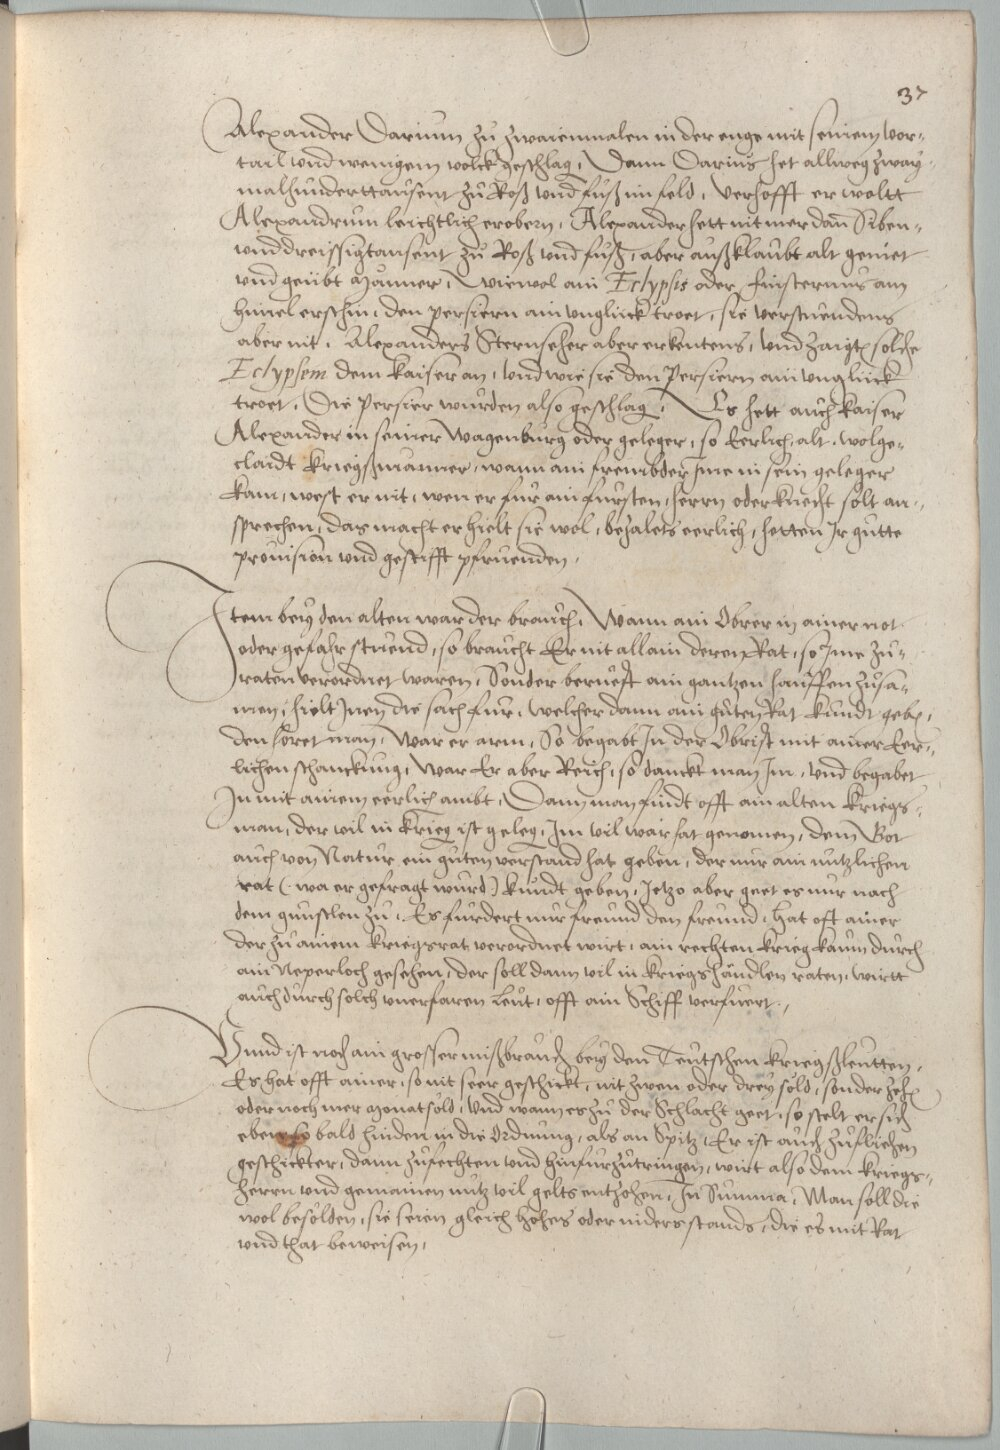 37
Alexander Darium zu zwaienmalen in der enge mit seinem vor-
tail und wenigem volck geschlag, Dann Darius het allweg zway-
malhunderttausent zu Roß und fuß im feld, verhofft er woltt
Alexandrum leichtlich erobern, Alexander hett nit mer dan Siben-
unddreissigtausent zu Roß und fuß, aber außklaubt alt geniet
und geübt Männer, Wiewol ain Eclypsis oder finsternus am
himel erschin, den persiern ain unglück troet, sie verstuendens
aber nit, Alexanders Sternseher aber erkentens, und zaigt solche
Eclypsem dem kaiser an, und wie sie den Persiern ain unglück
troet, Die Persier wurden also geschlag, Es hett auch kaiser
Alexander in seiner wagenburg oder geleger, so Eerlich alt, wolge-
claidt kriegßmänner, wann ain frembder Ime in sein geleger
kam, west er nit, wen er für ain fürsten, herrn oder knecht solt an-
sprechen, das macht er hielt sie wol, bezalets eerlich, hetten Ir gutte
provision und gestifft pfruenden,
Item bey den alten war der brauch, Wann ain Obrer in ainer not
oder gefahr stuend, so braucht Er nit allain deren Rat, so Ime zu-
raten verordnet waren, Sonder berueft ain gantzen hauffen zusa-
men, hielt Inen die sach für, welcher dann ain guten Rat kundt geben,
den höret man, War er arm, So begabt In der Obrist mit ainer Eer-
lichen schanckung, War Er aber Reich, so danckt man Im, und begabet
In mit ainem eerlich ambt, Dann man findt offt ain alten kriegs-
man, der vil in krieg ist geleg, Im vil warfat genomen, dem Got
auch von Natur ein guten verstand hat geben, der nur ain nutzlichen
rat (wa er gefragt wurd) kundt geben, Jetzo aber geet es nur nach
dem gunstlen zu, Es furdert nur freund den freund, hat oft ainer
der zu ainem kriegsrat verordnet wirt, ain rechten krieg kaum durch
ain Neperloch gesehen, der soll dann vil in kriegshändlen raten, wirtt
auch durch solch unerfaren leut, offt ain Schiff verfuert,
Vnnd ist noch ain grosser mißbrauch bey den Teutschen kriegßleutten,
Es hat offt ainer, so nit seer geschickt, nit zwen oder drey söld, sonder zehen
oder noch mer Monatsöld, und wann es zu der Schlacht geet, so stelt er sich
eben so bald hinden in die Ordnung, als an Spitz, Er ist auch zufliehen
geschickter, dann zufechten und hinfurzutringen, wirt also dem kriegs-
herrn und gemainen nutz vil gelts entzohen, In Summa, Man soll die
wol besolden, sie seien gleich hohes oder niders stands, die es mit Rat
und that beweisen,